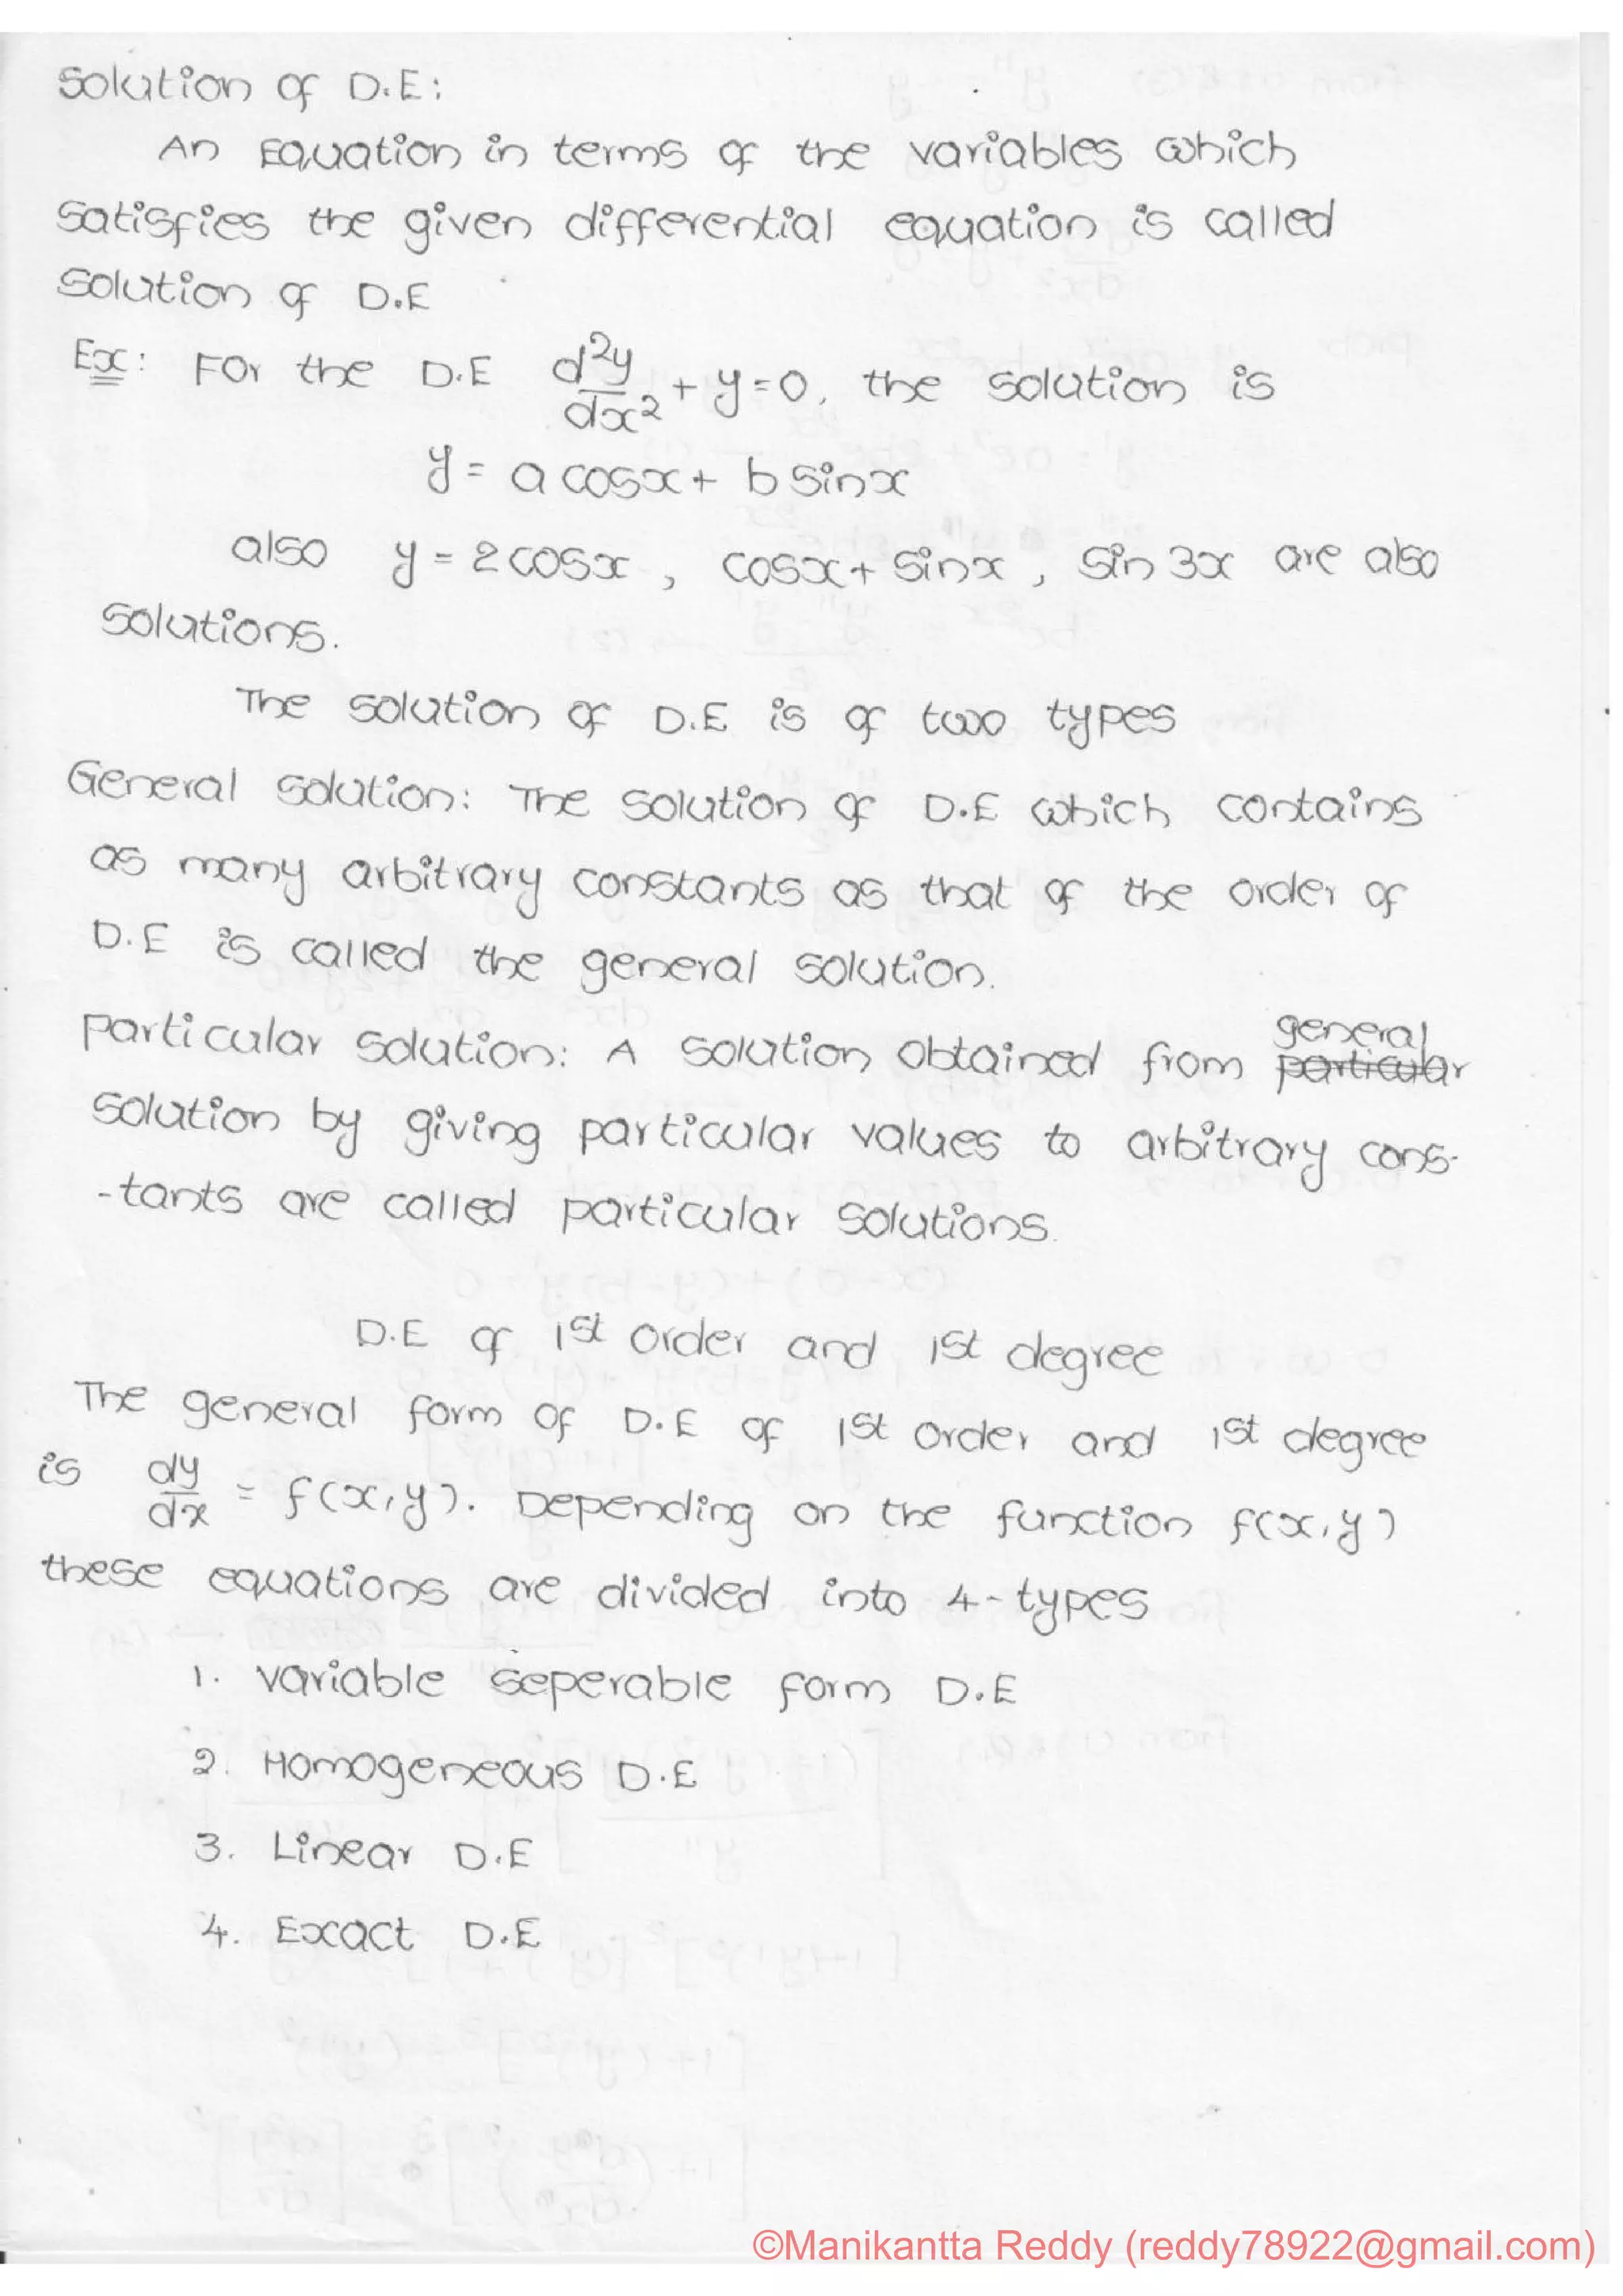 Solution of D.E:
An Equation in terms of the variables which
satisfies the given differential equation is called
solution of D.E
Ex: For the D.E d²y/dx² + y = 0, the solution is
y = a cosx + b sinx
also y = 2 cosx, cosx + sinx, sin 3x are also
solutions.
The solution of D.E is of two types
General solution: The solution of D.E which contains
as many arbitrary constants as that of the order of
D.E is called the general solution.
general
particular solution: A solution obtained from particular
solution by giving particular values to arbitrary cons-
-tants are called particular solutions.
D.E of 1st order and 1st degree
The general form of D.E of 1st order and 1st degree
is dy/dx = f(x,y). Depending on the function f(x,y)
these equations are divided into 4-types
1. variable seperable form D.E
2. Homogeneous D.E
3. Linear D.E
4. Exact D.E
©Manikantta Reddy (reddy78922@gmail.com)